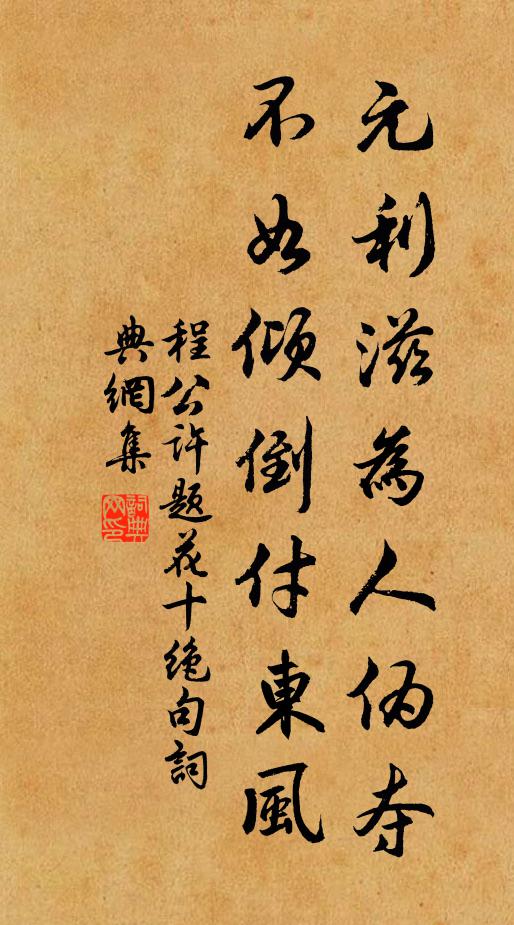 元利滋為人偽夺
不如傾倒付東風
程公許题花十绝句詞
典網集
詞典
网印